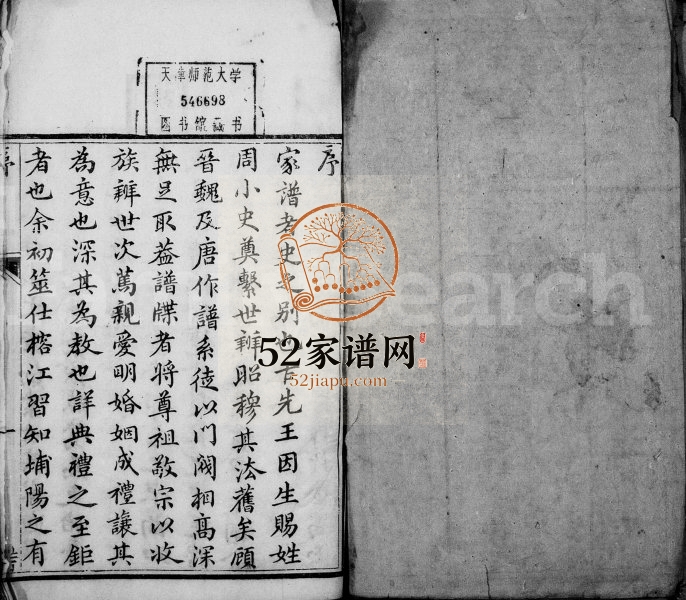 天津师范大学
546698
图书馆藏书
序
家譜者史之別先王因生賜姓
周小史奠繫世辨昭穆其法舊矣顧
晉魏及唐作譜系徒以門閥相高深
無足取葢譜牒者將尊祖敬宗以收
族辨世次篤親愛明婚姻成禮讓其
為意也深其為教也詳典禮之至鉅
者也余初筮仕榕江習知埔陽之有
序
一
52家谱网
52jiapu.com
earch